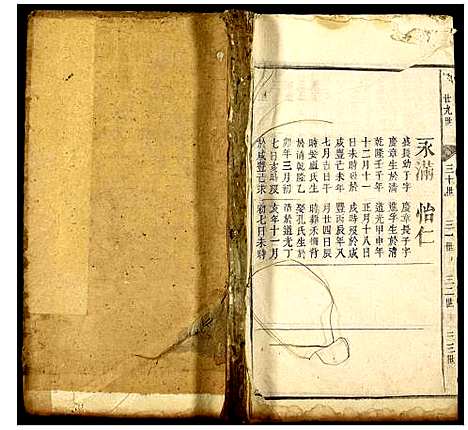 廿九世 三十世 三一世 三二世 三三世
永滿 怡仁
盛長幼字 慶章長子字
慶章生於清 進孚生於清
乾隆壬午年 道光甲申年
十二月十一 正月十八日
日未時歿於 戌時歿於咸
咸豐己未年 豐丙辰年八
七月吉日午 月廿四日辰
時娶盧氏生 時葬禾塲背
於清乾隆乙 娶孔氏生於
卯年三月初 清於道光丁
七日亥時歿 亥年十一月
於咸豐己未 初七日未時